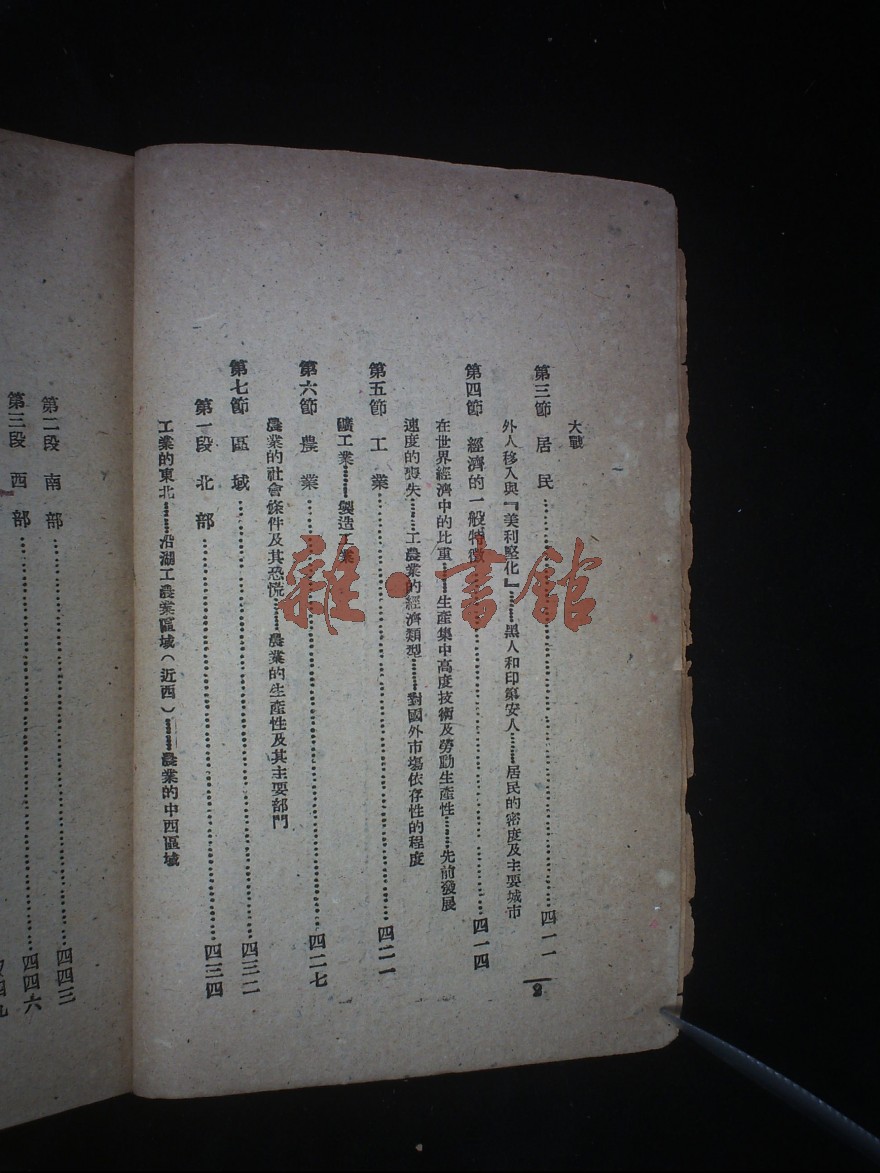 大戰
第三節 居民……四一一
外人移入與『美利堅化』……黑人和印第安人……居民的密度及主要城市
第四節 經濟的一般特徵……四一四
在世界經濟中的比重……生產集中高度技術及勞動生產性……先前發展
速度的喪失……工農業的經濟類型……對國外市場依存性的程度
第五節 工業……四二一
礦工業……製造工業
第六節 農業……四二七
農業的社會條件及其恐慌……農業的生產性及其主要部門
第七節 區域……四三二
第一段 北部……四三四
工業的東北……沿湖工農業區域(近西)……農業的中西區域
8
第二段 南部……四四三
第三段 西部……四四六
四九
雜·書館